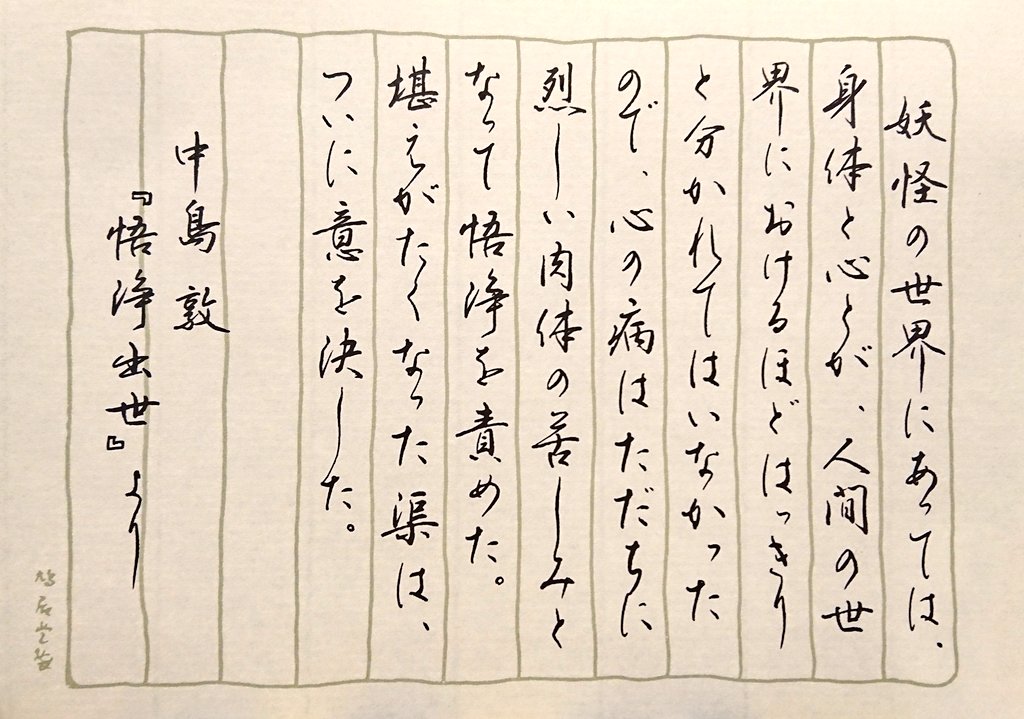 妖怪の世界にあっては、
身体と心とが、人間の世
界におけるほどはっきり
と分かれてはいなかった
ので、心の病はただちに
烈しい肉体の苦しみと
なって悟浄を責めた。
堪えがたくなった渠は、
ついに意を決した。
中島敦
『悟浄出世』より
鳩居堂製